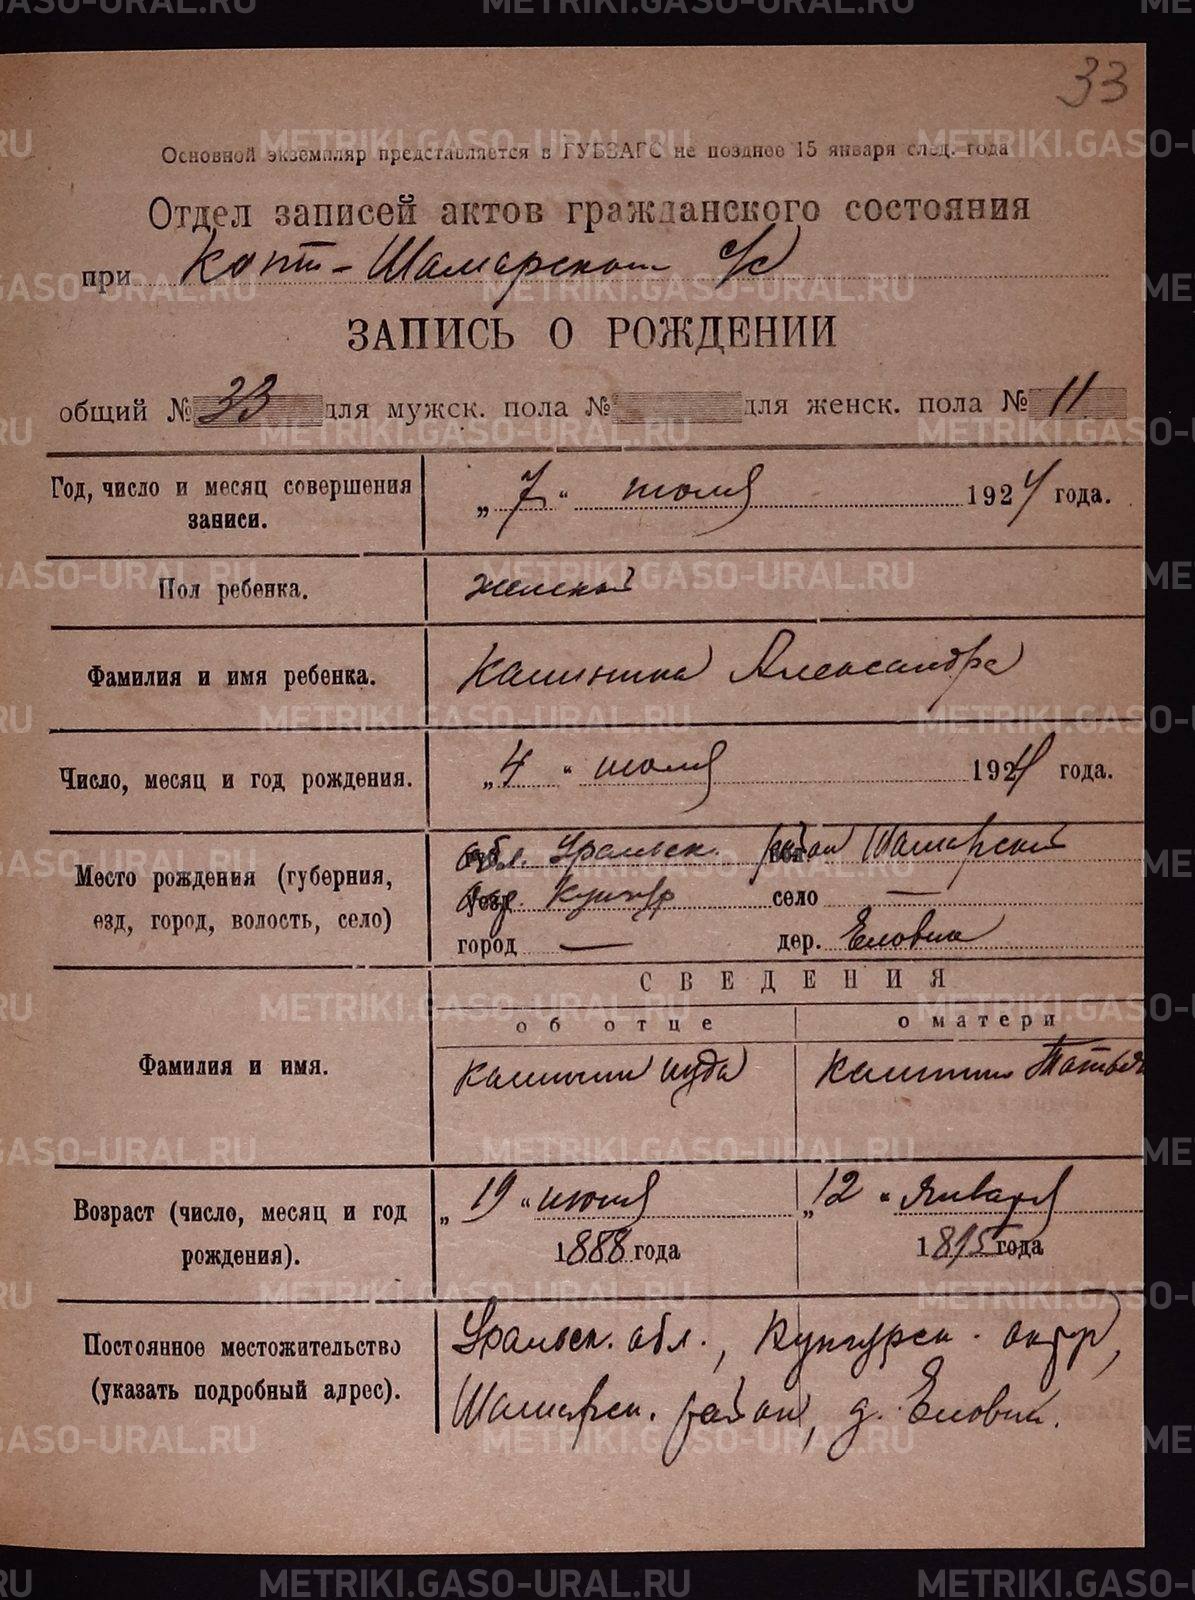 33
Основной экземпляр представляется в ГУБЗАГС не позднее 15 января след. года
Отдел записей актов гражданского состояния
при Копт-Шамарском с/с
ЗАПИСЬ О РОЖДЕНИИ
общий № 33 для мужск. пола № для женск. пола № 11
Год, число и месяц совершения записи. „7“ июля 1924 года.
Пол ребенка. женской
Фамилия и имя ребенка. Калинина Александра
Число, месяц и год рождения. „4“ июля 1924 года.
Место рождения (губерния, езд, город, волость, село)
обл. Уральск. район Шамарский
окр. Кунгур село —
город — дер. Еловка
СВЕДЕНИЯ
об отце о матери
Фамилия и имя. Калинин Иуда Калинин Татьян
Возраст (число, месяц и год рождения). „19“ июня 1888 года „12“ Января 1895 года
Постоянное местожительство (указать подробный адрес).
Уральск. обл., Кунгурск. округ,
Шамарск. район, д. Еловка.
METRIKI.GASO-URAL.RU